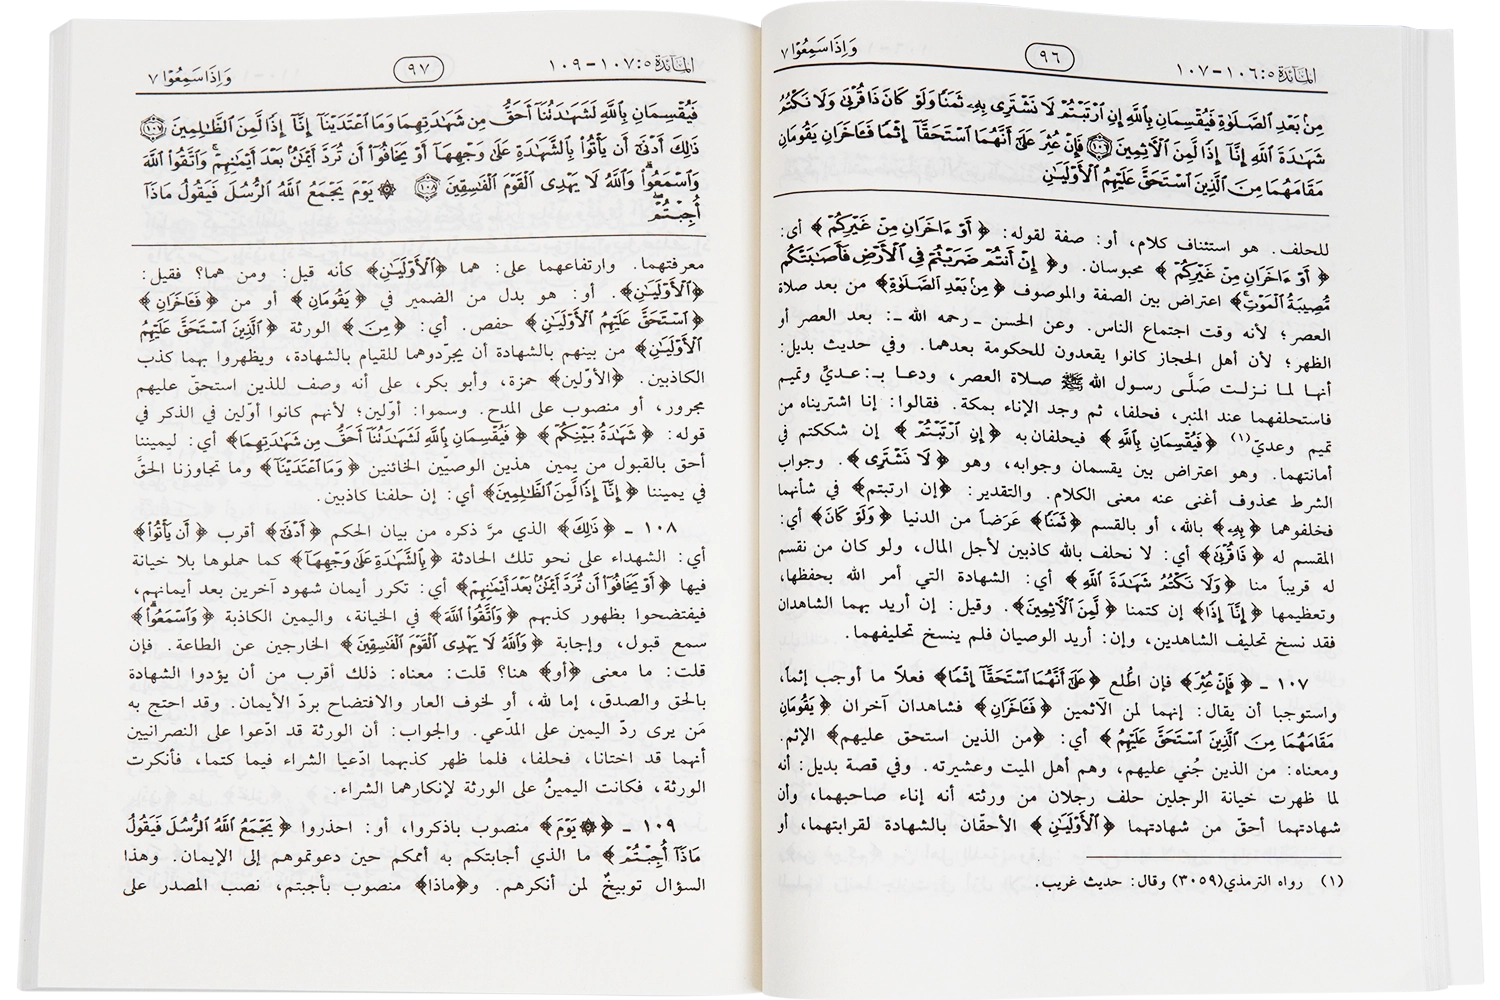 المائدة ٥: ١٠٦-١٠٧
٩٦
وَإِذَا سَمِعُوا ٧
مِنۢ بَعْدِ ٱلصَّلَوٰةِ فَيُقْسِمَانِ بِٱللَّهِ إِنِ ٱرْتَبْتُمْ لَا نَشْتَرِى بِهِۦ ثَمَنًا وَلَوْ كَانَ ذَا قُرْبَىٰ وَلَا نَكْتُمُ
شَهَـٰدَةَ ٱللَّهِ إِنَّآ إِذًا لَّمِنَ ٱلْأَثِمِينَ ١٠٦ فَإِنْ عُثِرَ عَلَىٰٓ أَنَّهُمَا ٱسْتَحَقَّآ إِثْمًا فَـَٔاخَرَانِ يَقُومَانِ
مَقَامَهُمَا مِنَ ٱلَّذِينَ ٱسْتَحَقَّ عَلَيْهِمُ ٱلْأَوْلَيَـٰنِ
للحلف. هو استئناف كلام، أو: صفة لقوله: ﴿أَوْ ءَاخَرَانِ مِنْ غَيْرِكُمْ﴾ أي:
﴿أَوْ ءَاخَرَانِ مِنْ غَيْرِكُمْ﴾ محبوسان. و﴿إِنْ أَنتُمْ ضَرَبْتُمْ فِى ٱلْأَرْضِ فَأَصَـٰبَتْكُم
مُّصِيبَةُ ٱلْمَوْتِ﴾ اعتراض بين الصفة والموصوف ﴿مِنۢ بَعْدِ ٱلصَّلَوٰةِ﴾ من بعد صلاة
العصر؛ لأنه وقت اجتماع الناس. وعن الحسن ـ رحمه الله ـ: بعد العصر أو
الظهر؛ لأن أهل الحجاز كانوا يقعدون للحكومة بعدهما. وفي حديث بديل:
أنها لما نزلت صَلَّى رسول الله ﷺ صلاة العصر، ودعا بـ: عديٍّ وتميم
فاستحلفهما عند المنبر، فحلفا، ثم وجد الإناء بمكة. فقالوا: إنا اشتريناه من
تميم وعديّ(١) ﴿فَيُقْسِمَانِ بِٱللَّهِ﴾ فيحلفان به ﴿إِنِ ٱرْتَبْتُمْ﴾ إن شككتم في
أمانتهما. وهو اعتراض بين يقسمان وجوابه، وهو ﴿لَا نَشْتَرِى﴾. وجواب
الشرط محذوف أغنى عنه معنى الكلام. والتقدير: ﴿إن ارتبتم﴾ في شأنهما
فحلفوهما ﴿بِهِۦ﴾ بالله، أو بالقسم ﴿ثَمَنًا﴾ عَرَضاً من الدنيا ﴿وَلَوْ كَانَ﴾ أي:
المقسم له ﴿ذَا قُرْبَىٰ﴾ أي: لا نحلف بالله كاذبين لأجل المال، ولو كان من نقسم
له قريباً منا ﴿وَلَا نَكْتُمُ شَهَـٰدَةَ ٱللَّهِ﴾ أي: الشهادة التي أمر الله بحفظها،
وتعظيمها ﴿إِنَّآ إِذًا﴾ إن كتمنا ﴿لَّمِنَ ٱلْأَثِمِينَ﴾. وقيل: إن أريد بهما الشاهدان
فقد نسخ تحليف الشاهدين، وإن: أريد الوصيان فلم ينسخ تحليفهما.
١٠٧ ـ ﴿فَإِنْ عُثِرَ﴾ فإن اطُّلع ﴿عَلَىٰٓ أَنَّهُمَا ٱسْتَحَقَّآ إِثْمًا﴾ فعلاً ما أوجب إثماً،
واستوجبا أن يقال: إنهما لمن الآثمين ﴿فَـَٔاخَرَانِ﴾ فشاهدان آخران ﴿يَقُومَانِ
مَقَامَهُمَا مِنَ ٱلَّذِينَ ٱسْتَحَقَّ عَلَيْهِمُ﴾ أي: ﴿من الذين استحق عليهم﴾ الإثم.
ومعناه: من الذين جُني عليهم، وهم أهل الميت وعشيرته. وفي قصة بديل: أنه
لما ظهرت خيانة الرجلين حلف رجلان من ورثته أنه إناء صاحبهما، وأن
شهادتهما أحقّ من شهادتهما ﴿ٱلْأَوْلَيَـٰنِ﴾ الأحقّان بالشهادة لقرابتهما، أو
(١) رواه الترمذي(٣٠٥٩) وقال: حديث غريب.
المائدة ٥: ١٠٧-١٠٩
٩٧
وَإِذَا سَمِعُوا ٧
فَيُقْسِمَانِ بِٱللَّهِ لَشَهَـٰدَتُنَآ أَحَقُّ مِن شَهَـٰدَتِهِمَا وَمَا ٱعْتَدَيْنَآ إِنَّآ إِذًا لَّمِنَ ٱلظَّـٰلِمِينَ ١٠٧
ذَٰلِكَ أَدْنَىٰٓ أَن يَأْتُوا۟ بِٱلشَّهَـٰدَةِ عَلَىٰ وَجْهِهَآ أَوْ يَخَافُوٓا۟ أَن تُرَدَّ أَيْمَـٰنٌۢ بَعْدَ أَيْمَـٰنِهِمْ ۗ وَٱتَّقُوا۟ ٱللَّهَ
وَٱسْمَعُوا۟ ۗ وَٱللَّهُ لَا يَهْدِى ٱلْقَوْمَ ٱلْفَـٰسِقِينَ ١٠٨ ۞ يَوْمَ يَجْمَعُ ٱللَّهُ ٱلرُّسُلَ فَيَقُولُ مَاذَآ
أُجِبْتُمْ ۖ
معرفتهما. وارتفاعهما على: هما ﴿ٱلْأَوْلَيَـٰنِ﴾ كأنه قيل: ومن هما؟ فقيل:
﴿ٱلْأَوْلَيَـٰنِ﴾. أو: هو بدل من الضمير في ﴿يَقُومَانِ﴾ أو من ﴿فَـَٔاخَرَانِ﴾
﴿ٱسْتَحَقَّ عَلَيْهِمُ ٱلْأَوْلَيَـٰنِ﴾ حفص. أي: ﴿مِنَ﴾ الورثة ﴿ٱلَّذِينَ ٱسْتَحَقَّ عَلَيْهِمُ
ٱلْأَوْلَيَـٰنِ﴾ من بينهم بالشهادة أن يجرّدوهما للقيام بالشهادة، ويظهروا بهما كذب
الكاذبين. ﴿الأوّلين﴾ حمزة، وأبو بكر، على أنه وصف للذين استحقّ عليهم
مجرور، أو منصوب على المدح. وسموا: أوّلين؛ لأنهم كانوا أوّلين في الذكر في
قوله: ﴿شَهَـٰدَةُ بَيْنِكُمْ﴾ ﴿فَيُقْسِمَانِ بِٱللَّهِ لَشَهَـٰدَتُنَآ أَحَقُّ مِن شَهَـٰدَتِهِمَا﴾ أي: ليميننا
أحق بالقبول من يمين هذين الوصيّين الخائنين ﴿وَمَا ٱعْتَدَيْنَآ﴾ وما تجاوزنا الحقّ
في يميننا ﴿إِنَّآ إِذًا لَّمِنَ ٱلظَّـٰلِمِينَ﴾ أي: إن حلفنا كاذبين.
١٠٨ ـ ﴿ذَٰلِكَ﴾ الذي مرّ ذكره من بيان الحكم ﴿أَدْنَىٰٓ﴾ أقرب ﴿أَن يَأْتُوا۟﴾
أي: الشهداء على نحو تلك الحادثة ﴿بِٱلشَّهَـٰدَةِ عَلَىٰ وَجْهِهَآ﴾ كما حملوها بلا خيانة
فيها ﴿أَوْ يَخَافُوٓا۟ أَن تُرَدَّ أَيْمَـٰنٌۢ بَعْدَ أَيْمَـٰنِهِمْ﴾ أي: تكرر أيمان شهود آخرين بعد أيمانهم،
فيفتضحوا بظهور كذبهم ﴿وَٱتَّقُوا۟ ٱللَّهَ﴾ في الخيانة، واليمين الكاذبة ﴿وَٱسْمَعُوا۟﴾
سمع قبول، وإجابة ﴿وَٱللَّهُ لَا يَهْدِى ٱلْقَوْمَ ٱلْفَـٰسِقِينَ﴾ الخارجين عن الطاعة. فإن
قلت: ما معنى ﴿أو﴾ هنا؟ قلت: معناه: ذلك أقرب من أن يؤدوا الشهادة
بالحق والصدق، إما لله، أو لخوف العار والافتضاح بردّ الأيمان. وقد احتج به
مَن يرى ردّ اليمين على المدّعي. والجواب: أن الورثة قد ادّعوا على النصرانيين
أنهما قد اختانا، فحلفا، فلما ظهر كذبهما ادّعيا الشراء فيما كتما، فأنكرت
الورثة، فكانت اليمينُ على الورثة لإنكارهما الشراء.
١٠٩ ـ ﴿۞ يَوْمَ﴾ منصوب باذكروا، أو: احذروا ﴿يَجْمَعُ ٱللَّهُ ٱلرُّسُلَ فَيَقُولُ
مَاذَآ أُجِبْتُمْ﴾ ما الذي أجابتكم به أممكم حين دعوتموهم إلى الإيمان. وهذا
السؤال توبيخٌ لمن أنكرهم. و﴿ماذا﴾ منصوب بأجبتم، نصب المصدر على